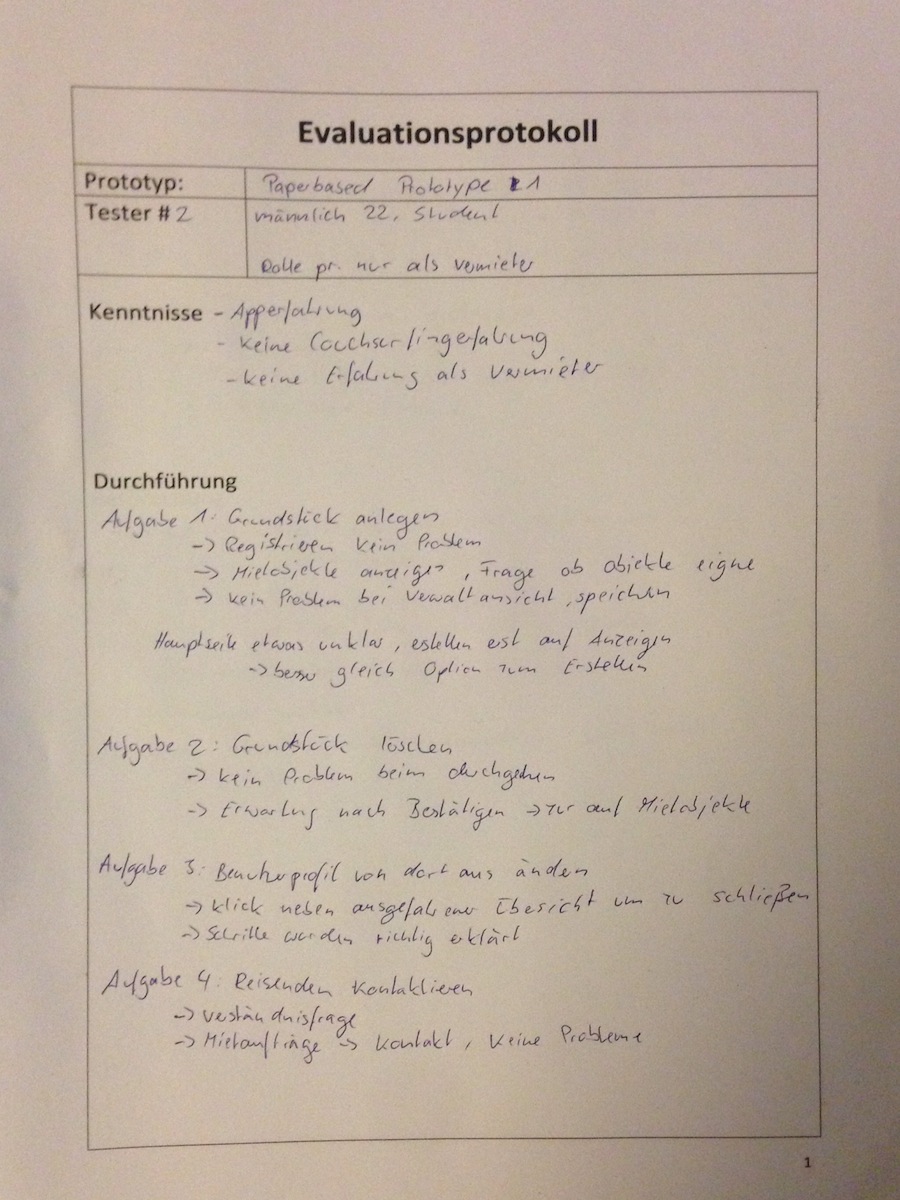 Evaluationsprotokoll
Prototyp: Paperbased Prototype 1
Tester # 2 männlich 22, Student
Rolle pr. nur als Vermieter
Kenntnisse - Apperfahrung
- keine Couchsurfingerfahrung
- keine Erfahrung als Vermieter
Durchführung
Aufgabe 1: Grundstück anlegen
-> Registrieren kein Problem
-> Mietobjekte anzeigen, Frage ob Objekte eigne
-> kein Problem bei Verwaltansicht, speichern
Hauptseite etwas unklar, erstellen erst auf Anzeigen
-> besser gleich Option zum Erstellen
Aufgabe 2: Grundstück löschen
-> kein Problem beim durchgehen
-> Erwartung nach Bestätigen -> auf Mietobjekte
Aufgabe 3: Benutzerprofil von dort aus ändern
-> klick neben ausgefahrener Übersicht um zu schließen
-> Schritte wurden richtig erklärt
Aufgabe 4: Reisenden kontaktieren
-> Verständnisfrage
-> Mietaufträge -> Kontakt, keine Probleme
1